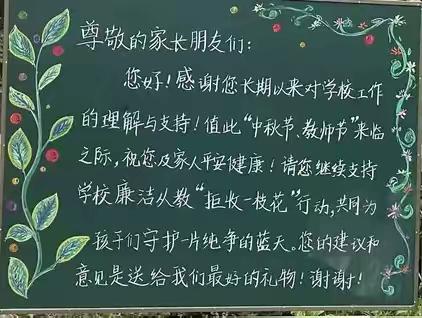 尊敬的家长朋友们:
您好!感谢您长期以来对学校工作
的理解与支持!值此“中秋节、教师节”来临
之际,祝您及家人平安健康!请您继续支持
学校廉洁从教“拒收一枝花”行动,共同为
孩子们守护一片纯净的蓝天。您的建议和
意见是送给我们最好的礼物!谢谢!